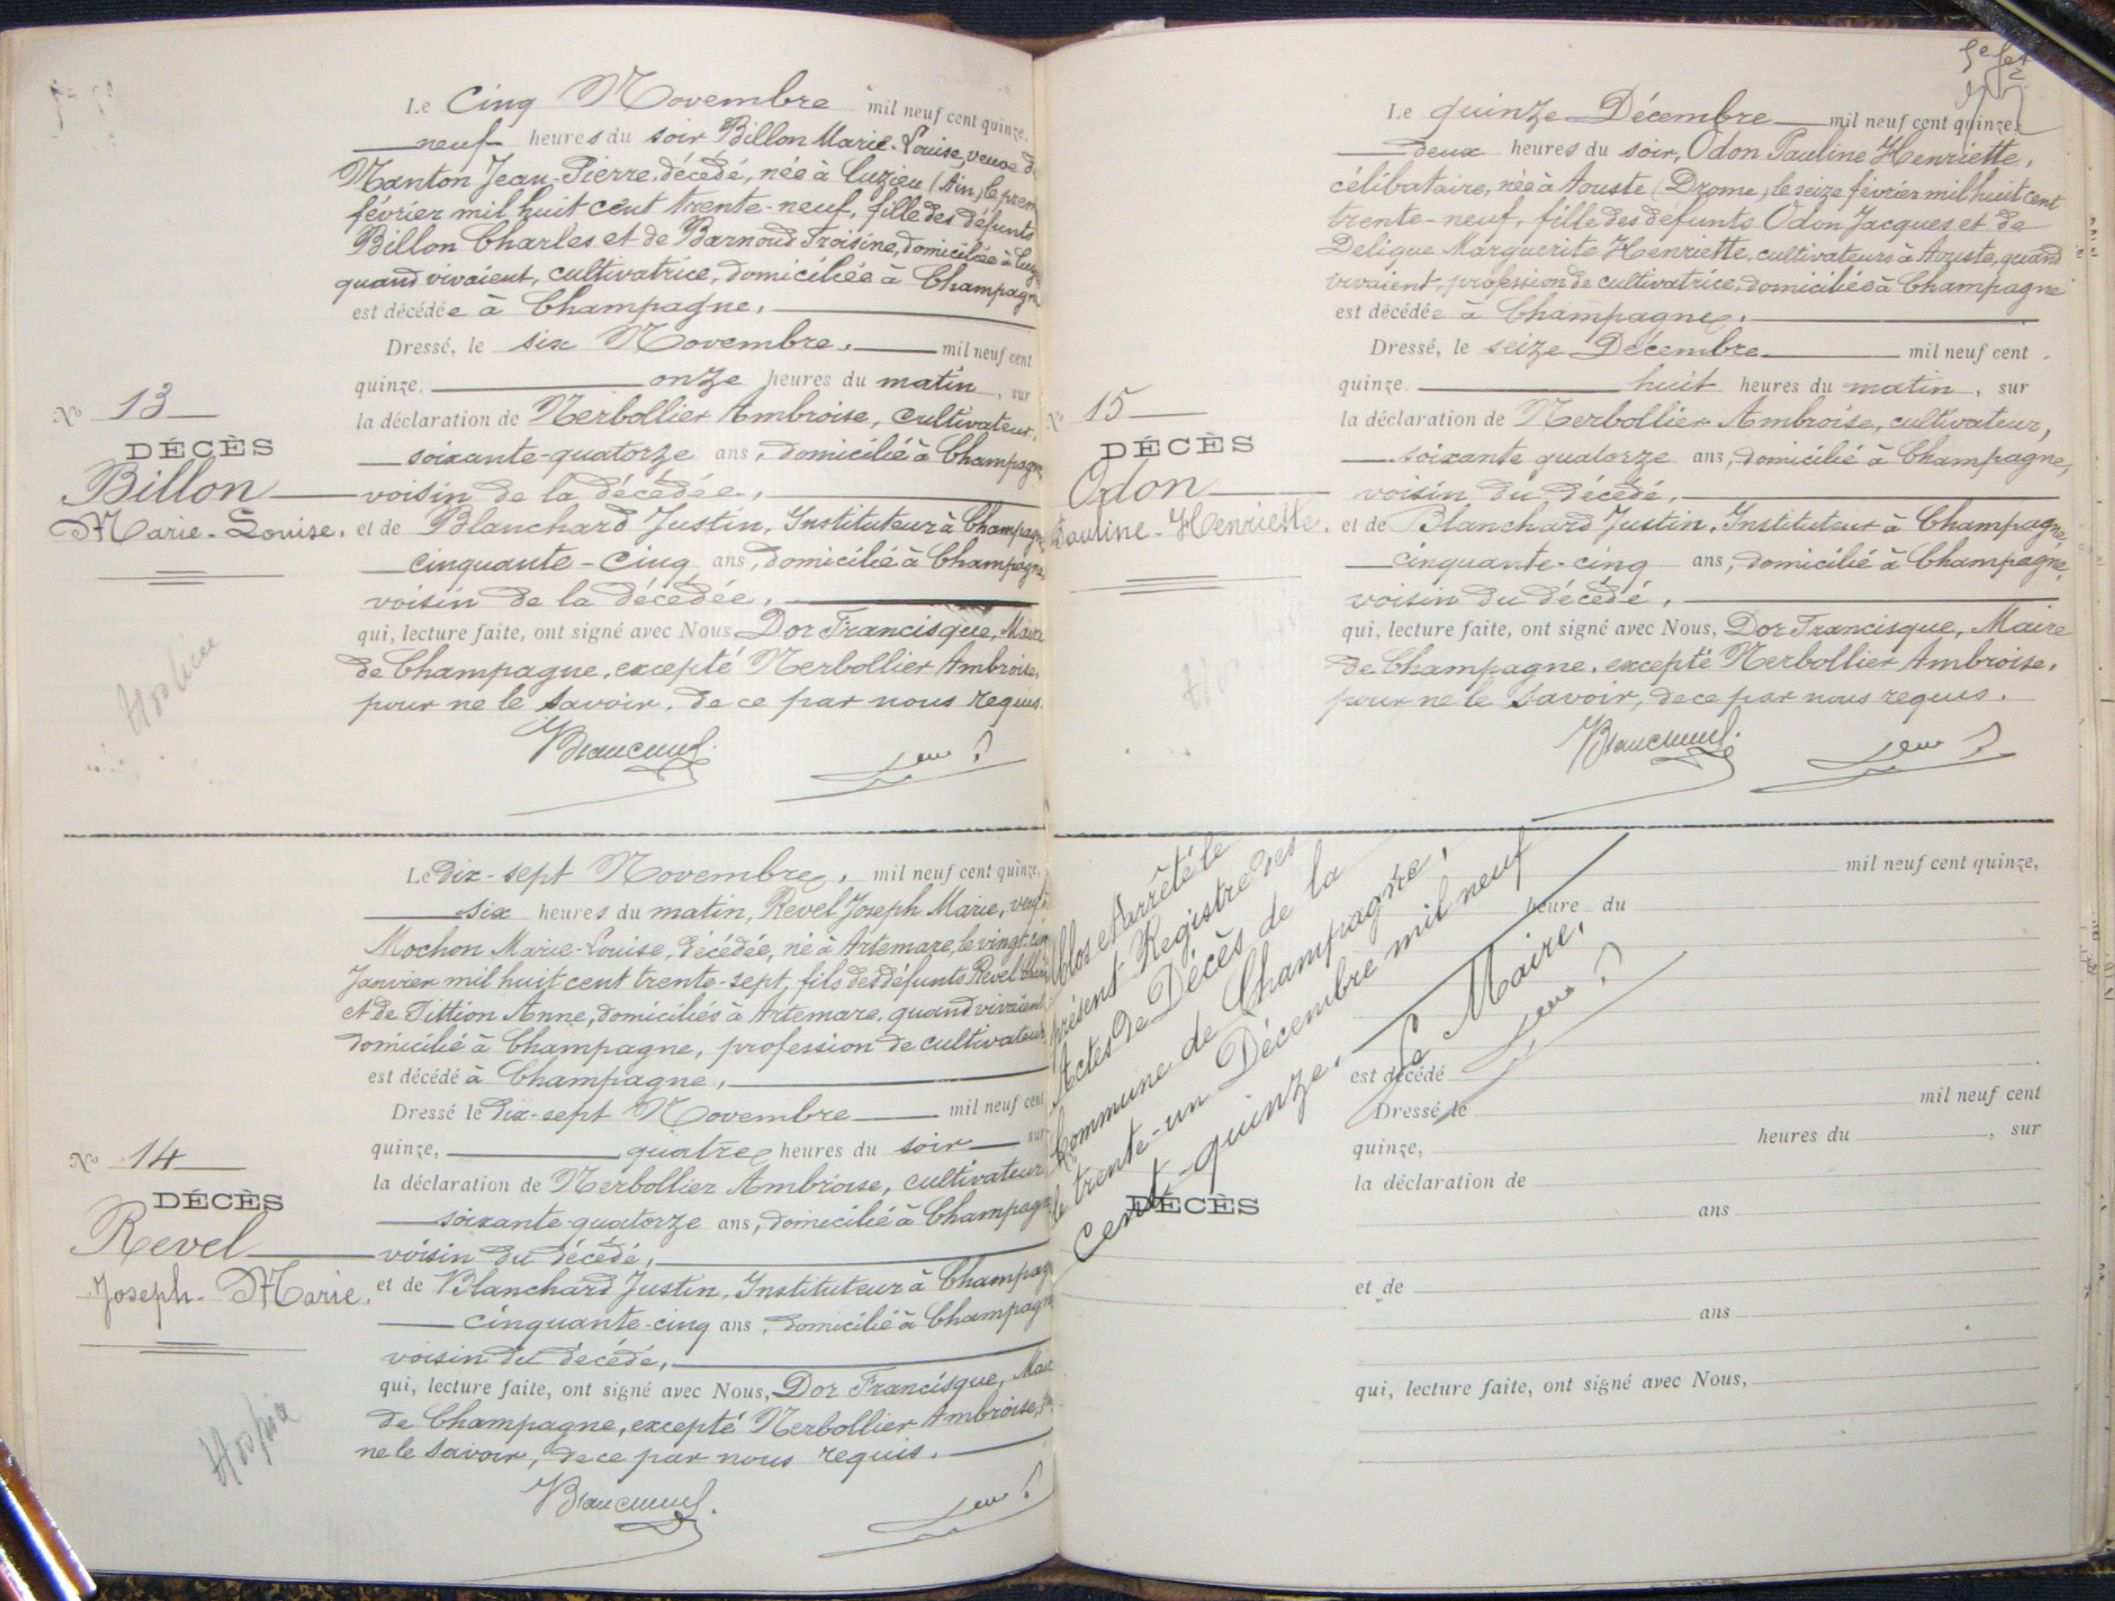 Le Cinq Novembre mil neuf cent quinze,
neuf heures du soir Billon Marie-Louise, veuve de
Manton Jean-Pierre, décédé, née à Luzieu (Ain), le prem
février mil huit cent trente-neuf, fille des défunts
Billon Charles et de Barnoud Froisine, domiciliée à
quand vivaient, cultivatrice, domiciliée à Champagne
est décédée à Champagne,
Dressé, le six Novembre, mil neuf cent
quinze, onze heures du matin, sur
la déclaration de Nerbollier Ambroise, cultivateur,
soixante-quatorze ans, domicilié à Champagne
voisin de la décédée,
et de Blanchard Justin, Instituteur à Champagne
cinquante-cinq ans, domicilié à Champagne
voisin de la décédée,
qui, lecture faite, ont signé avec Nous Dor Francisque, Maire
de Champagne, excepté Nerbollier Ambroise,
pour ne le savoir, de ce par nous requis.
No 13
DÉCÈS
Billon
Marie-Louise.
Le dix-sept Novembre, mil neuf cent quinze,
six heures du matin, Revel Joseph Marie, veuf
Mochon Marie-Louise, décédée, né à Artemare, le vingt-
Janvier mil huit cent trente-sept, fils des défunts Revel
et de Tittion Anne, domiciliés à Artemare, quand vivaient
domicilié à Champagne, profession de cultivateur,
est décédé à Champagne,
Dressé le dix-sept Novembre mil neuf cent
quinze, quatre heures du soir sur
la déclaration de Nerbollier Ambroise, cultivateur
soixante-quatorze ans, domicilié à Champagne
voisin du décédé,
et de Blanchard Justin, Instituteur à Champag
cinquante-cinq ans, domicilié à Champagne
voisin du décédé,
qui, lecture faite, ont signé avec Nous, Dor Francisque, Mair
de Champagne, excepté Nerbollier Ambroise,
ne le savoir, de ce par nous requis.
No 14
DÉCÈS
Revel
Joseph-Marie.
Le quinze Décembre mil neuf cent quinze,
deux heures du soir, Odon Pauline Henriette,
célibataire, née à Aouste (Drome), le seize février mil huit cent
trente-neuf, fille des défunts Odon Jacques et de
Deligue Marguerite Henriette, cultivateurs à Aouste, quand
vivaient, profession de cultivatrice, domiciliée à Champagne
est décédée à Champagne,
Dressé, le seize Décembre mil neuf cent
quinze, huit heures du matin, sur
la déclaration de Nerbollier Ambroise, cultivateur,
soixante quatorze ans, domicilié à Champagne,
voisin du décédé,
et de Blanchard Justin, Instituteur à Champagne,
cinquante-cinq ans, domicilié à Champagne,
voisin du décédé,
qui, lecture faite, ont signé avec Nous, Dor Francisque, Maire
de Champagne, excepté Nerbollier Ambroise,
pour ne le savoir, de ce par nous requis.
No 15
DÉCÈS
Odon
Pauline-Henriette.
Clos et Arrêté le
présent Registre des
Actes de Décès de la
Commune de Champagne,
le trente-un Décembre mil neuf
cent-quinze.
Le Maire,
mil neuf cent quinze,
heure du
est décédé
Dressé, le mil neuf cent
quinze, heures du , sur
la déclaration de
ans
DÉCÈS
et de
ans
qui, lecture faite, ont signé avec Nous,